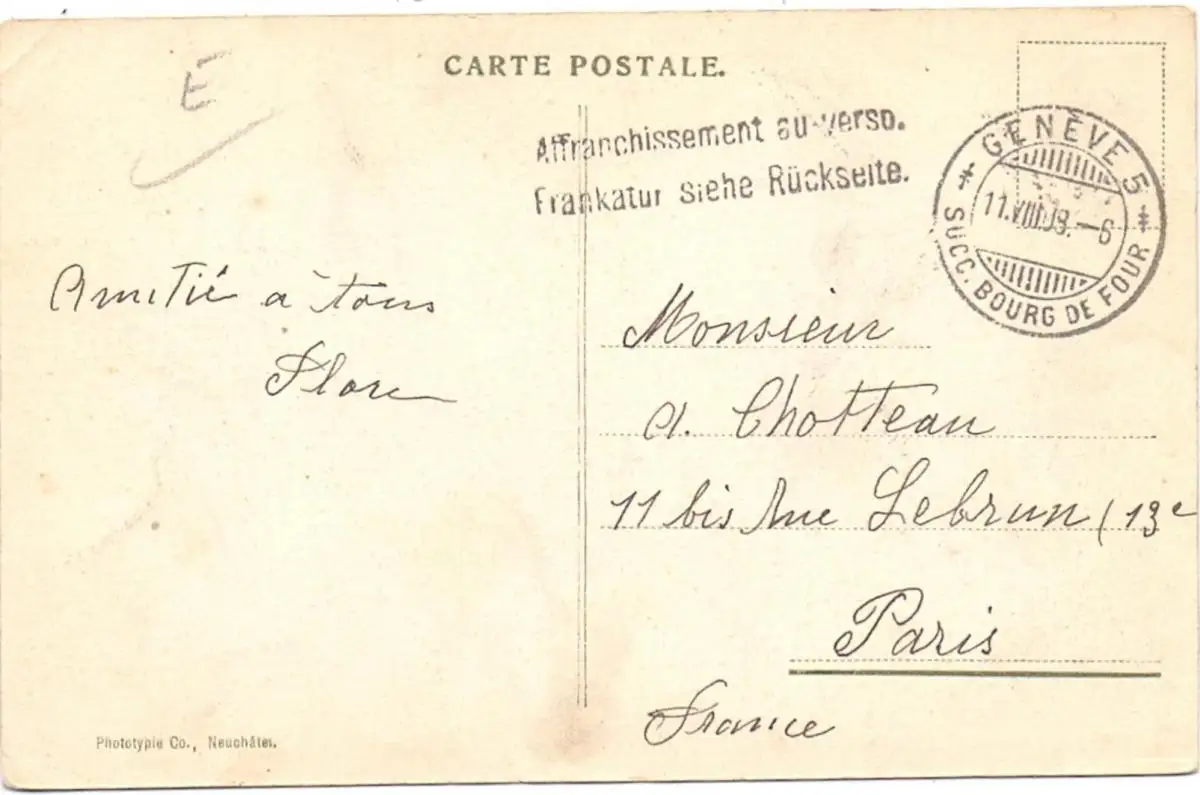 E
CARTE POSTALE.
Affranchissement au verso.
Frankatur siehe Rückseite.
GENÈVE 5
11.VIII.09.-6
SUCC. BOURG DE FOUR
Amitié à tous
Flore
Monsieur
A. Chotteau
11 bis Rue Lebrun (13e
Paris
France
Phototypie Co., Neuchâtel.